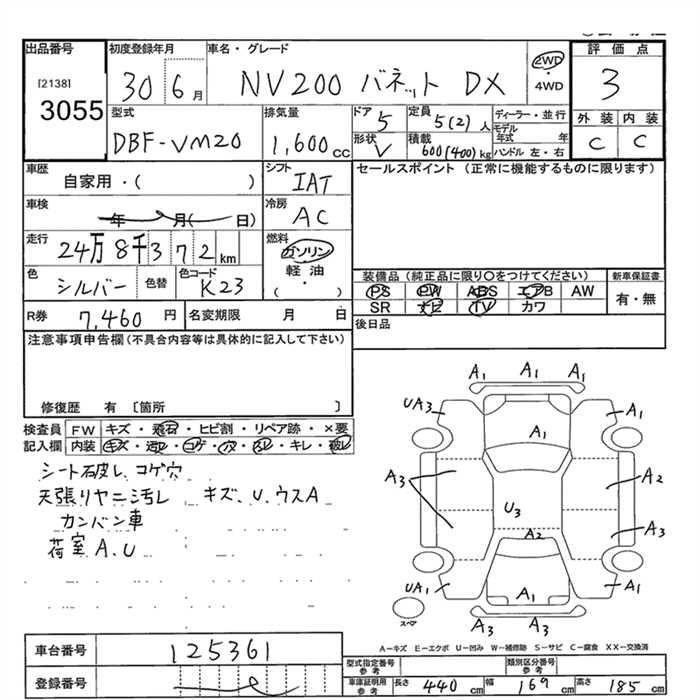 出品番号
[2138]
3055
初度登録年月
30 6 月
車名・グレード
NV200 バネット DX
2WD
・
4WD
評価点
3
型式
DBF-VM20
排気量
1,600 cc
ドア 5
形状 V
定員 5(2) 人
積載 600(400) kg
ディーラー・並行
モデル年式 年
ハンドル 左・右
外装 内装
C C
車歴
自家用・( )
シフト
IAT
セールスポイント (正常に機能するものに限ります)
車検
年 月( 日)
冷房
AC
走行
24万8千372 km
燃料
ガソリン
・
軽油
( ・ )
色
シルバー
色替
色コード
K23
装備品 (純正品に限り○をつけてください)
PS PW ABS エアB AW
SR ナビ TV カワ
新車保証書
有・無
R券 7,460 円
名変期限 月 日
後日品
注意事項申告欄(不具合内容等は具体的に記入して下さい)
修復歴 有 〔箇所 〕
検査員 FW キズ・飛石・ヒビ割・リペア跡・×要
記入欄 内装 キズ・汚レ・コゲ・穴・スレ・キレ・破レ
シート破レ、コゲ穴
天張りヤニ汚レ キズ、U、ウスA
カンバン車
荷室A、U
A1 A1 A1
UA3 A1
A1
A3 A2
U3
A2 A3
UA1 A1 A1
A3 A3
スペア
A-キズ E-エクボ U-凹み W-補修跡 S-サビ C-腐食 XX-交換済
車台番号 125361
登録番号
型式指定番号 参考
類別区分番号 参考
車庫証明用 参考 長さ 440 cm 幅 169 cm 高さ 185 cm